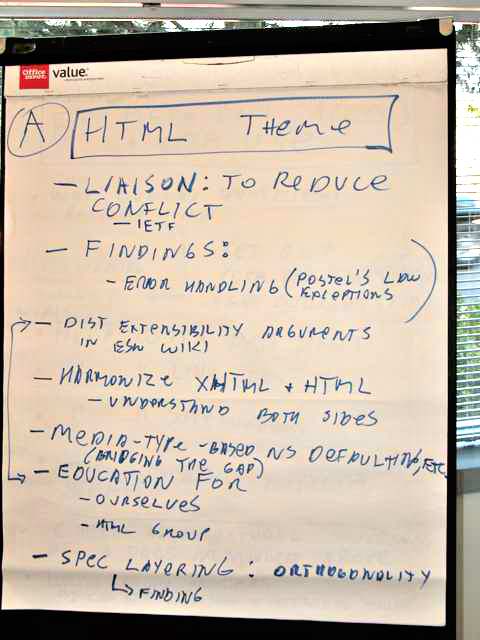 Office DEPOT value.
A HTML THEME
- LIAISON: TO REDUCE
CONFLICT
- IETF
- FINDINGS:
- ERROR HANDLING (POSTEL'S LAW
EXCEPTIONS
- DIST EXTENSIBILITY ARGUMENTS
IN ESW WIKI
- HARMONIZE XHTML + HTML
- UNDERSTAND BOTH SIDES
- MEDIA-TYPE-BASED NS DEFAULTING, ETC
(BRIDGING THE GAP)
- EDUCATION FOR
- OURSELVES
- HTML GROUP
- SPEC LAYERING: ORTHOGONALITY
FINDING